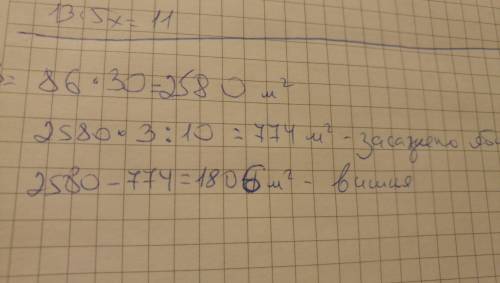 13,5x = 11
S= 86·30=2580 м²
2580·3:10 = 774 м² - засажено ябл
2580-774=1806 м² - вишня